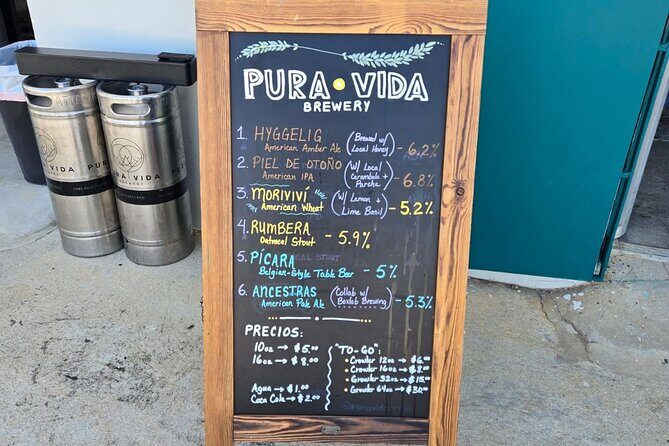 PURA VIDA
BREWERY
1. HYGGELIG (Brewed w/ Local Honey) - 6.2%
American Amber Ale
2. PIEL DE OTOÑO (W/ Local Carambola + Parcha) - 6.8%
American IPA
3. MORIVIVÍ (W/ Lemon + Lime Basil) - 5.2%
American Wheat
4. RUMBERA
Oatmeal Stout - 5.9%
5. PÍCARA
Belgian-Style Table Beer - 5%
6. ANCESTRAS (Collab w/ Boxlab Brewing) - 5.3%
American Pale Ale
PRECIOS:
10oz → $5.00
16oz → $8.00
Agua → $1.00
Coca Cola → $2.00
"TO-GO"
Crowler 12oz → $6.00
Crowler 16oz → $8.00
Growler 32oz → $15.00
Growler 64oz → $30.00
PURA VIDA
BREWERY